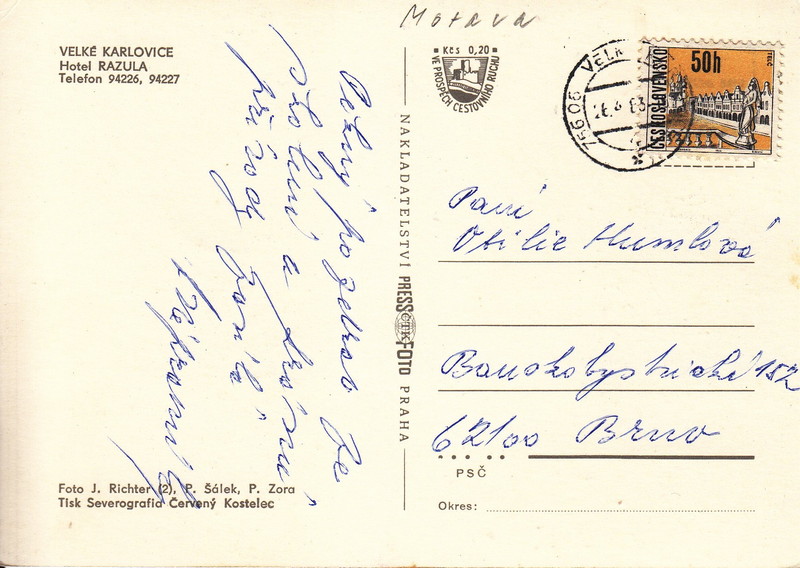 Morava
VELKÉ KARLOVICE
Hotel RAZULA
Telefon 94226, 94227
Kčs 0,20
VE PROSPĚCH CESTOVNÍHO RUCHU
756 06 VELK
26. 83
50h
ČESKOSLOVENSKO
Pěkný pozdrav ze
školení a krásné
přírody zasílá
Paní
Otilie Humlová
Banskobystrická 152
62100 Brno
PSČ
Okres:
NAKLADATELSTVÍ PRESSFOTO PRAHA
ČTK
Foto J. Richter (2), P. Šálek, P. Zora
Tisk Severografia Červený Kostelec